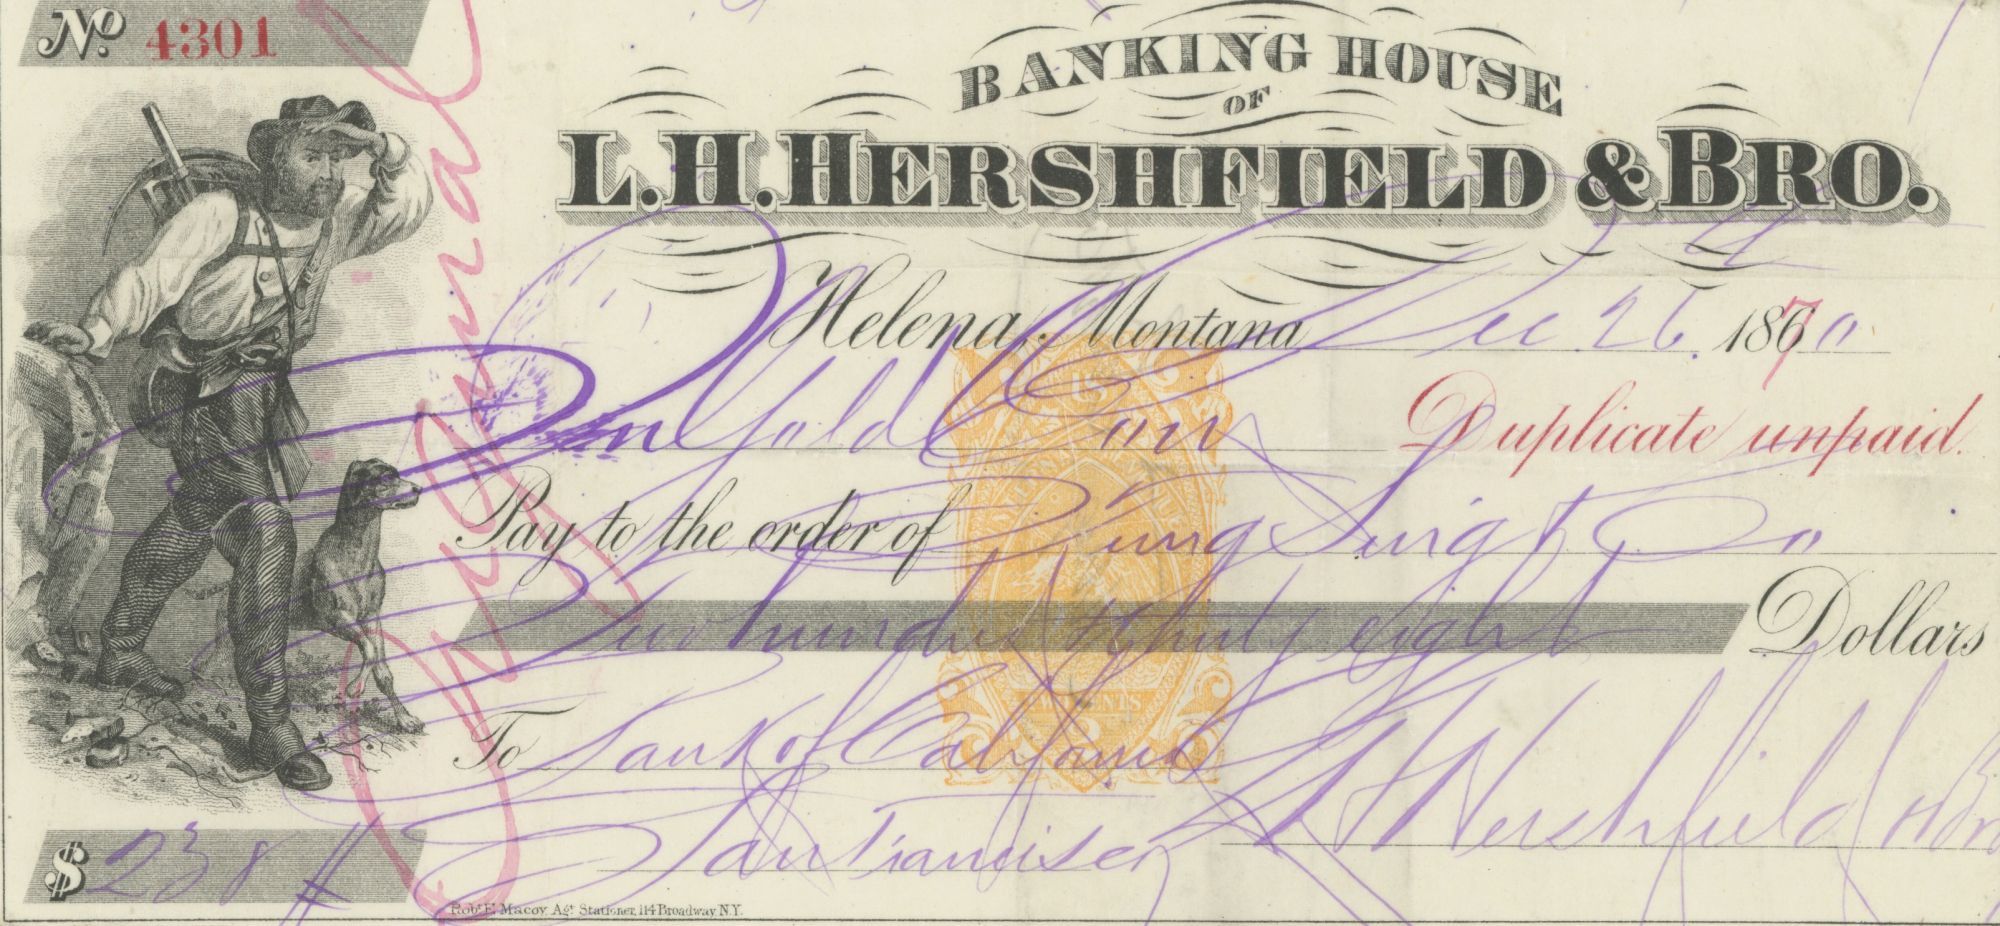 No. 4301
BANKING HOUSE
OF
L. H. HERSHFIELD & BRO.
Helena, Montana Dec 26 1870
In Gold Coin Duplicate unpaid.
Pay to the order of
Two hundred thirty eight Dollars
To Bank of California
L H Hershfield & Bro
San Francisco
$ 238
Robt. E. Macoy Agt. Stationer, 114 Broadway N.Y.
US
TWO CENTS